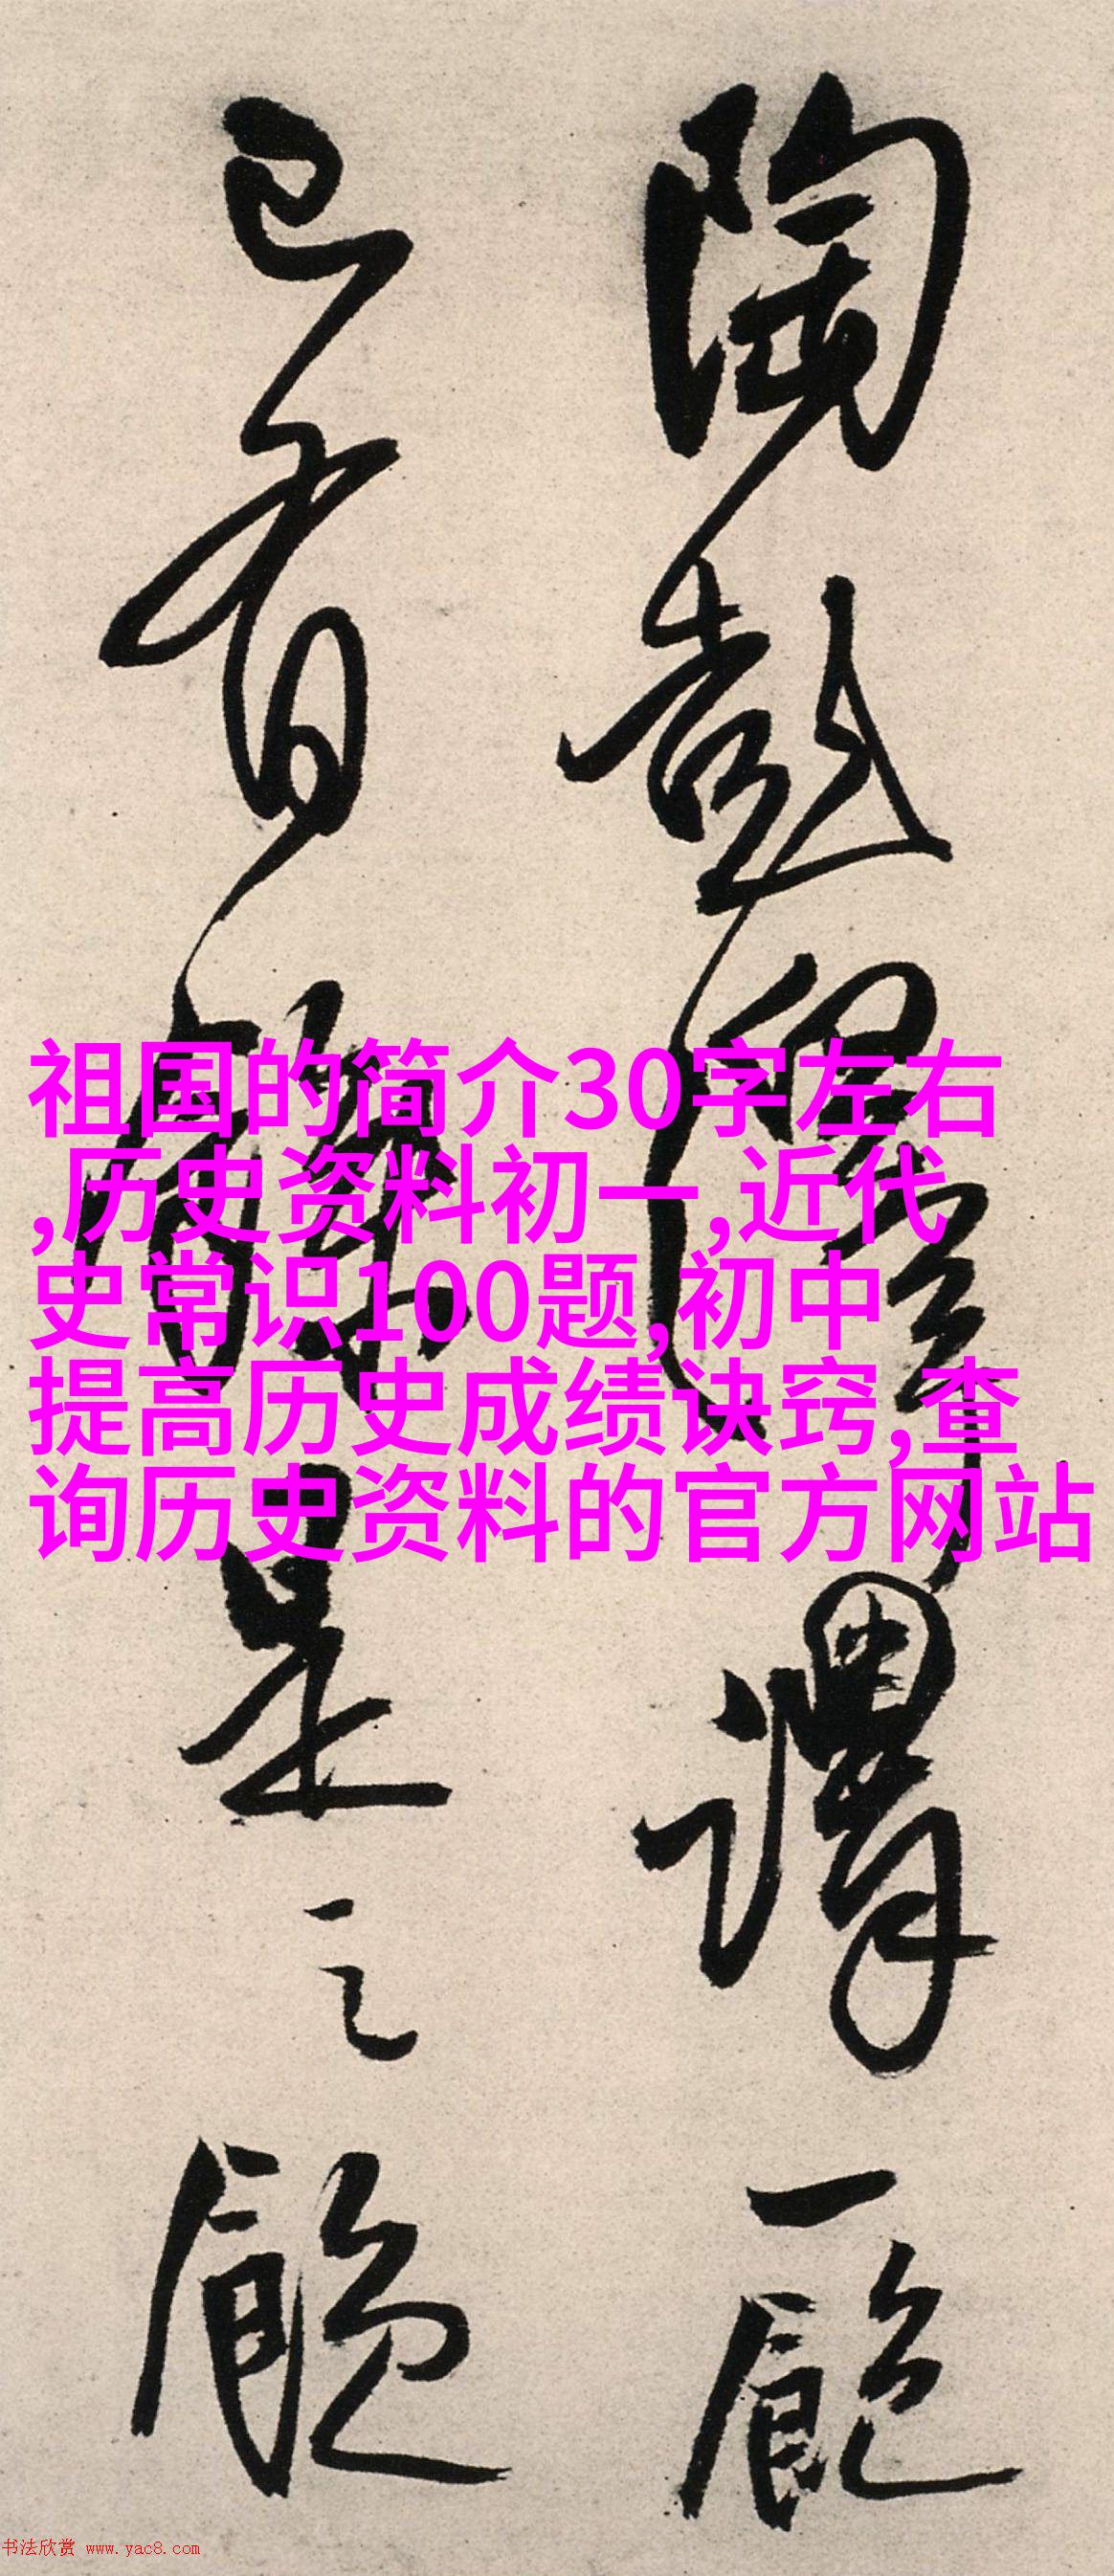 陶彭澤謂一飽
已有餘是之
祖国的简介30字左右
,历史资料初一,近代
史常识100题,初中
提高历史成绩诀窍,查
询历史资料的官方网站
书法欣赏 www.yac8.com